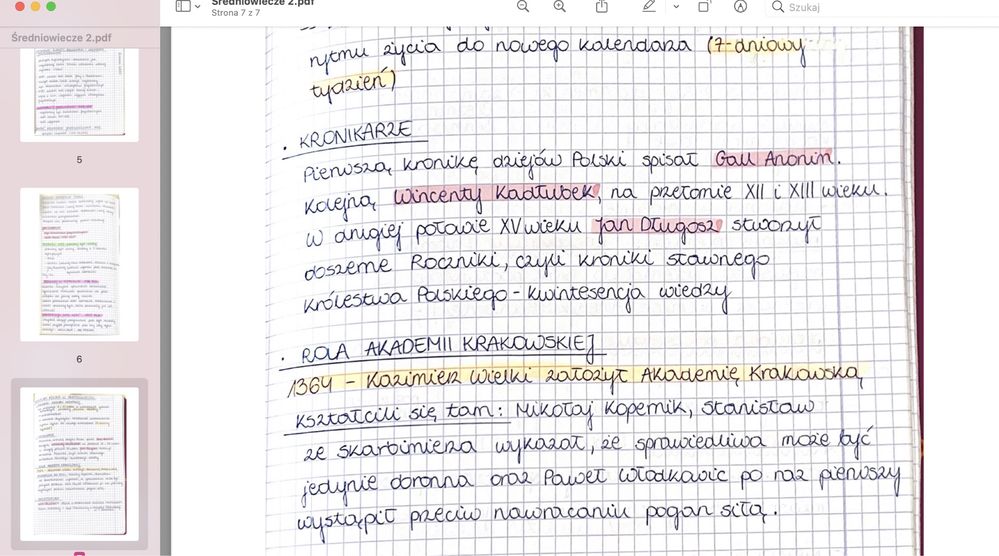 Średniowiecze 2.pdf
Strona 7 z 7
Szukaj
Średniowiecze 2.pdf
5
6
rytmu życia do nowego kalendarza (7-dniowy
tydzień)
• KRONIKARZE
Pierwszą kronikę dziejów Polski spisał Gall Anonin.
Kolejną Wincenty Kadłubek, na przełomie XII i XIII wieku.
W drugiej połowie XV wieku Jan Długosz stworzył
obszerne Roczniki, czyli kroniki sławnego
Królestwa Polskiego - kwintesencja wiedzy
• ROLA AKADEMII KRAKOWSKIEJ
1364 - Kazimierz Wielki założył Akademię Krakowską
Kształcili się tam: Mikołaj Kopernik, Stanisław
ze Skarbimierza wykazał, że sprawiedliwa może być
jedynie obronna oraz Paweł Włodkowic po raz pierwszy
wystąpił przeciw nawracaniu pogan siłą.